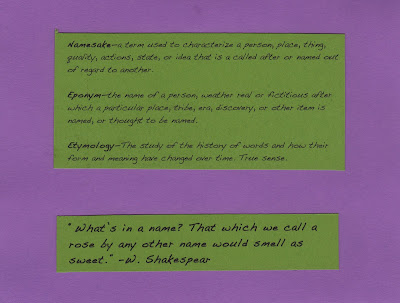 Namesake-a term used to characterize a person, place, thing,
quality, actions, state, or idea that is a called after or named out
of regard to another.
Eponym-the name of a person, weather real or fictitious after
which a particular place, tribe, era, discovery, or other item is
named, or thought to be named.
Etymology-The study of the history of words and how their
form and meaning have changed over time. True sense.
"What's in a name? That which we call a
rose by any other name would smell as
sweet." -W. Shakespear